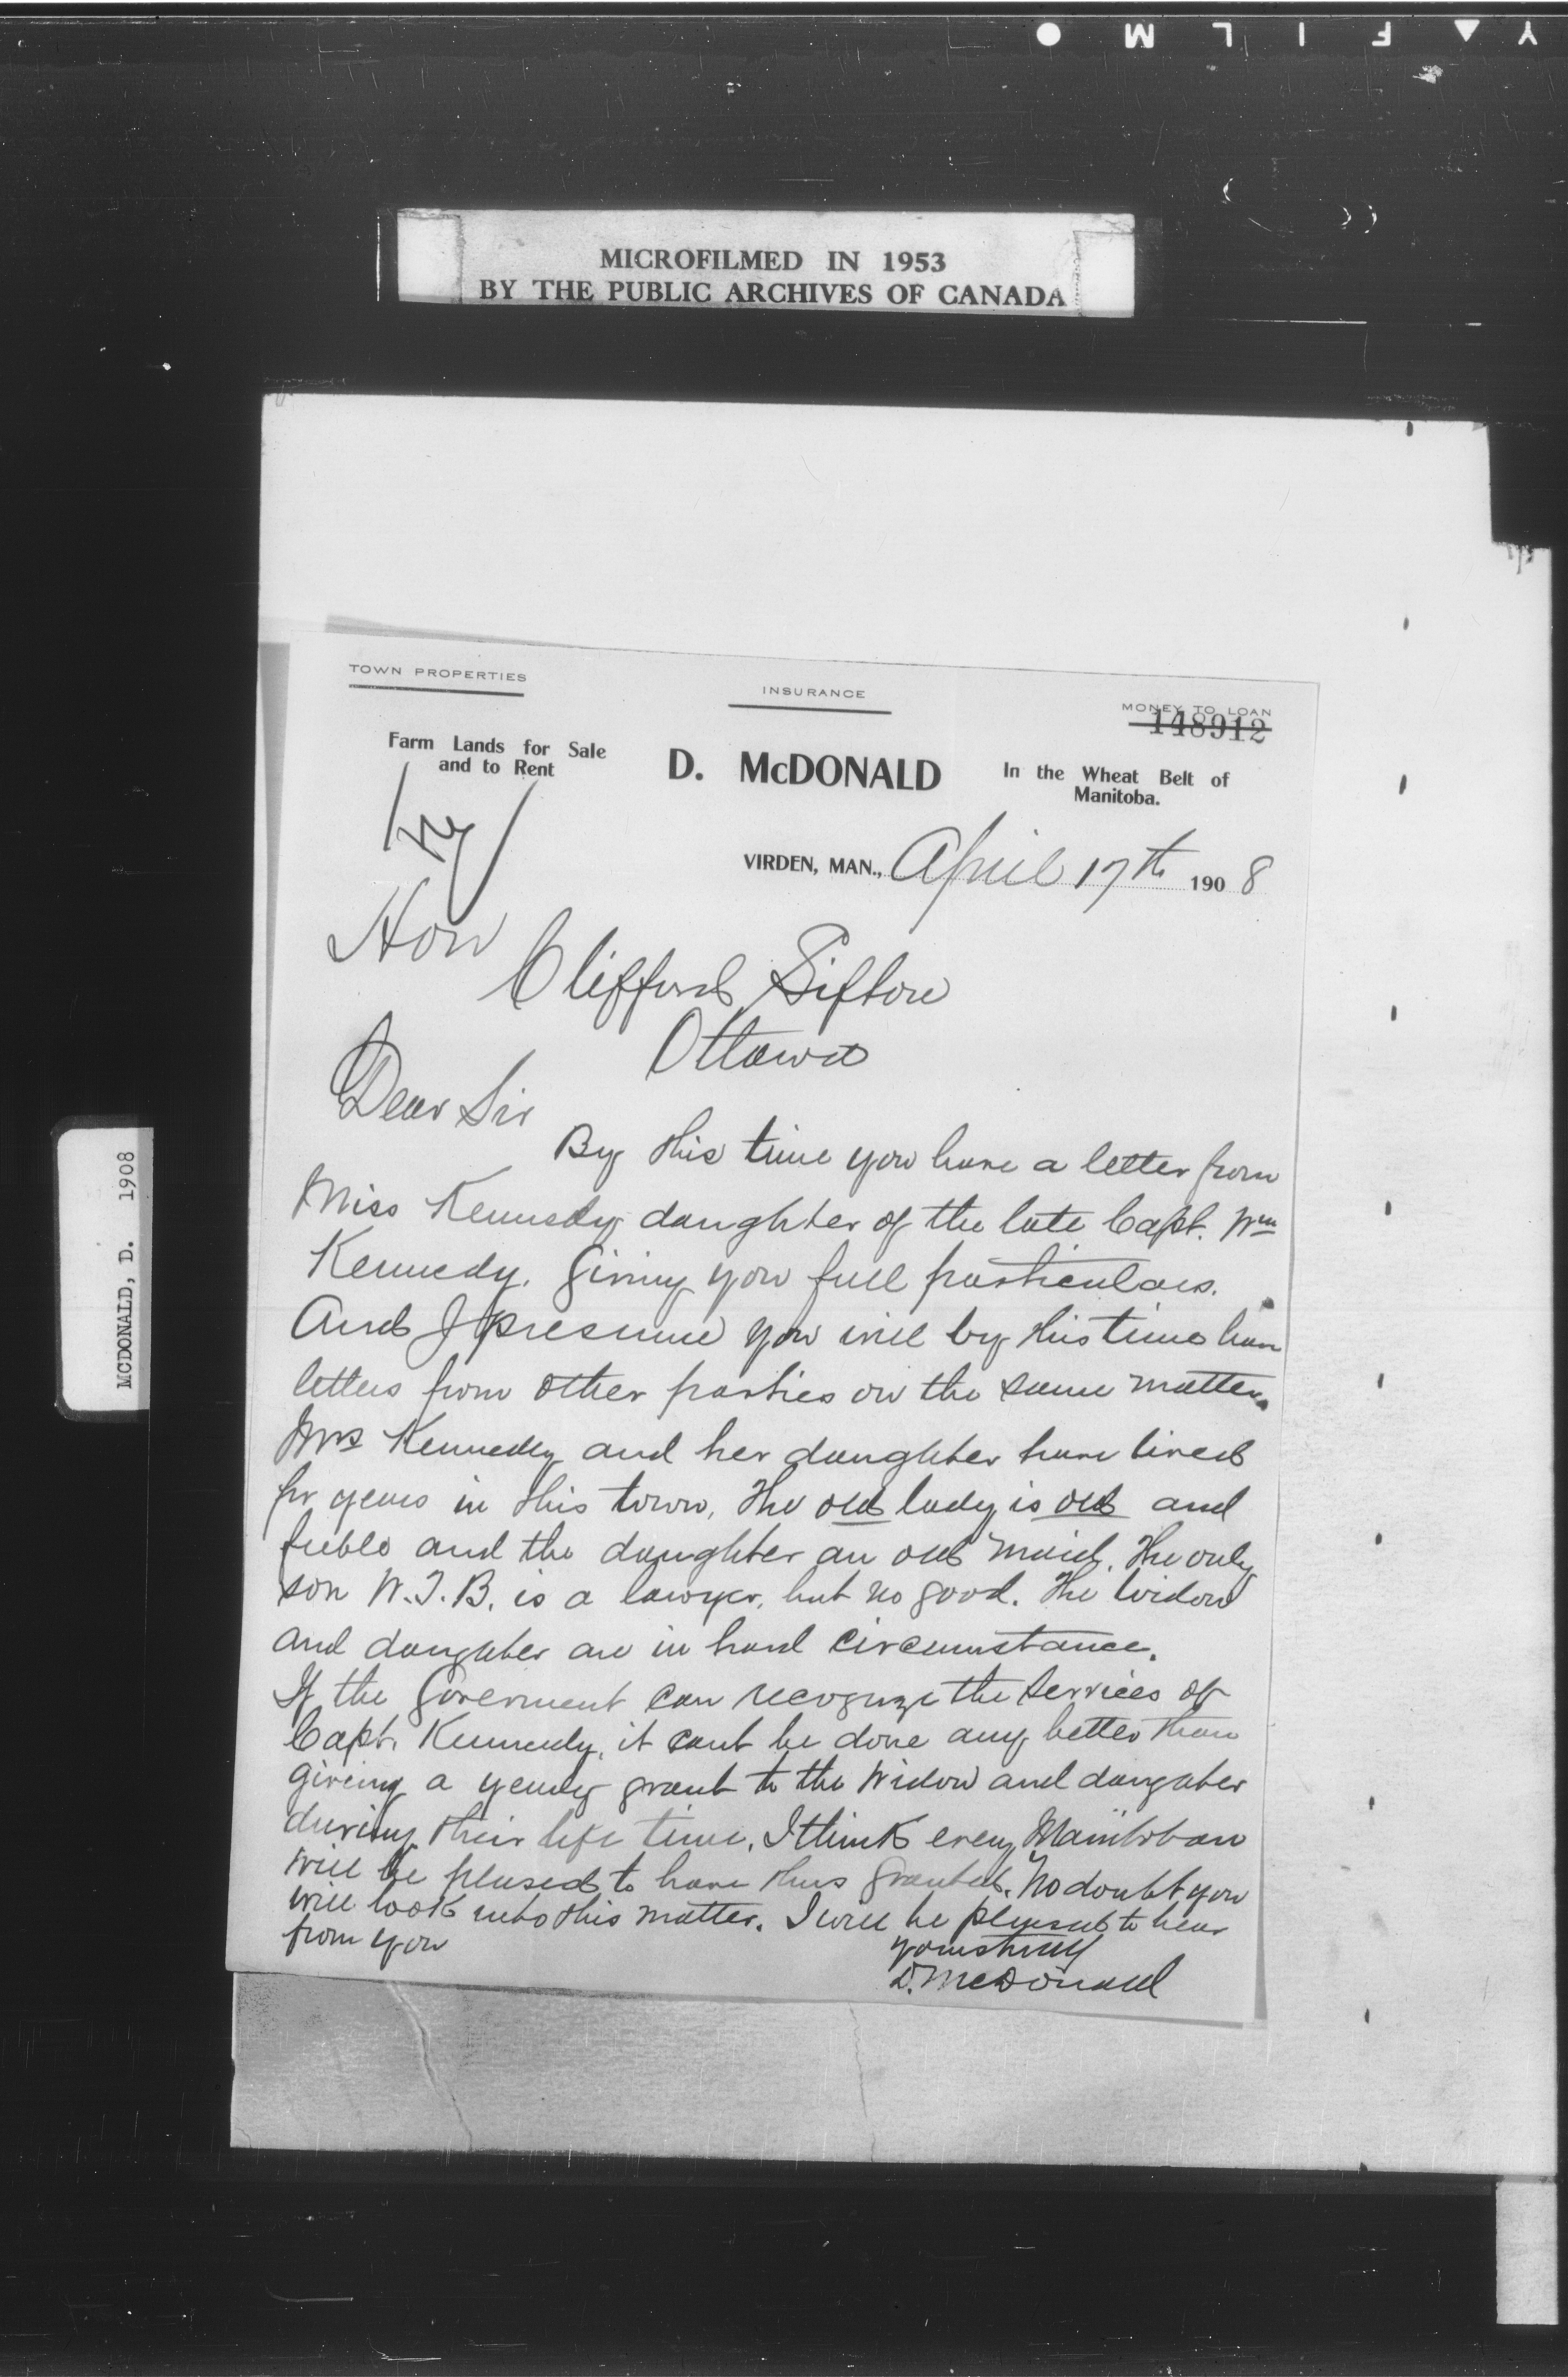 Y▲FILM●
MICROFILMED IN 1953
BY THE PUBLIC ARCHIVES OF CANADA
MCDONALD, D. 1908
TOWN PROPERTIES
INSURANCE
MONEY TO LOAN
148912
Farm Lands for Sale
and to Rent
D. McDONALD
In the Wheat Belt of
Manitoba.
VIRDEN, MAN., April 17th 1908
Hon
Clifford Sifton
Ottawa
Dear Sir
By this time you have a letter from
Miss Kennedy daughter of the late Capt. Wm
Kennedy. Giving you full particulars.
And I presume you will by this time have
letters from other parties on the same matter.
Mrs Kennedy and her daughter have lived
for years in this town, The old lady is old and
feeble and the daughter an old maid. The only
son W.T.B. is a lawyer, but no good. The Widow
and daughter are in hard circumstance.
If the Goverment can recognize the services of
Capt. Kennedy, it cant be done any better than
giveing a yearly grant to the Widow and daugater
during their life time. I think every Manitoban
will be pleased to have this granted. No doubt you
will look into this matter. I will be pleased to hear
from you
yours truly
D. McDonald